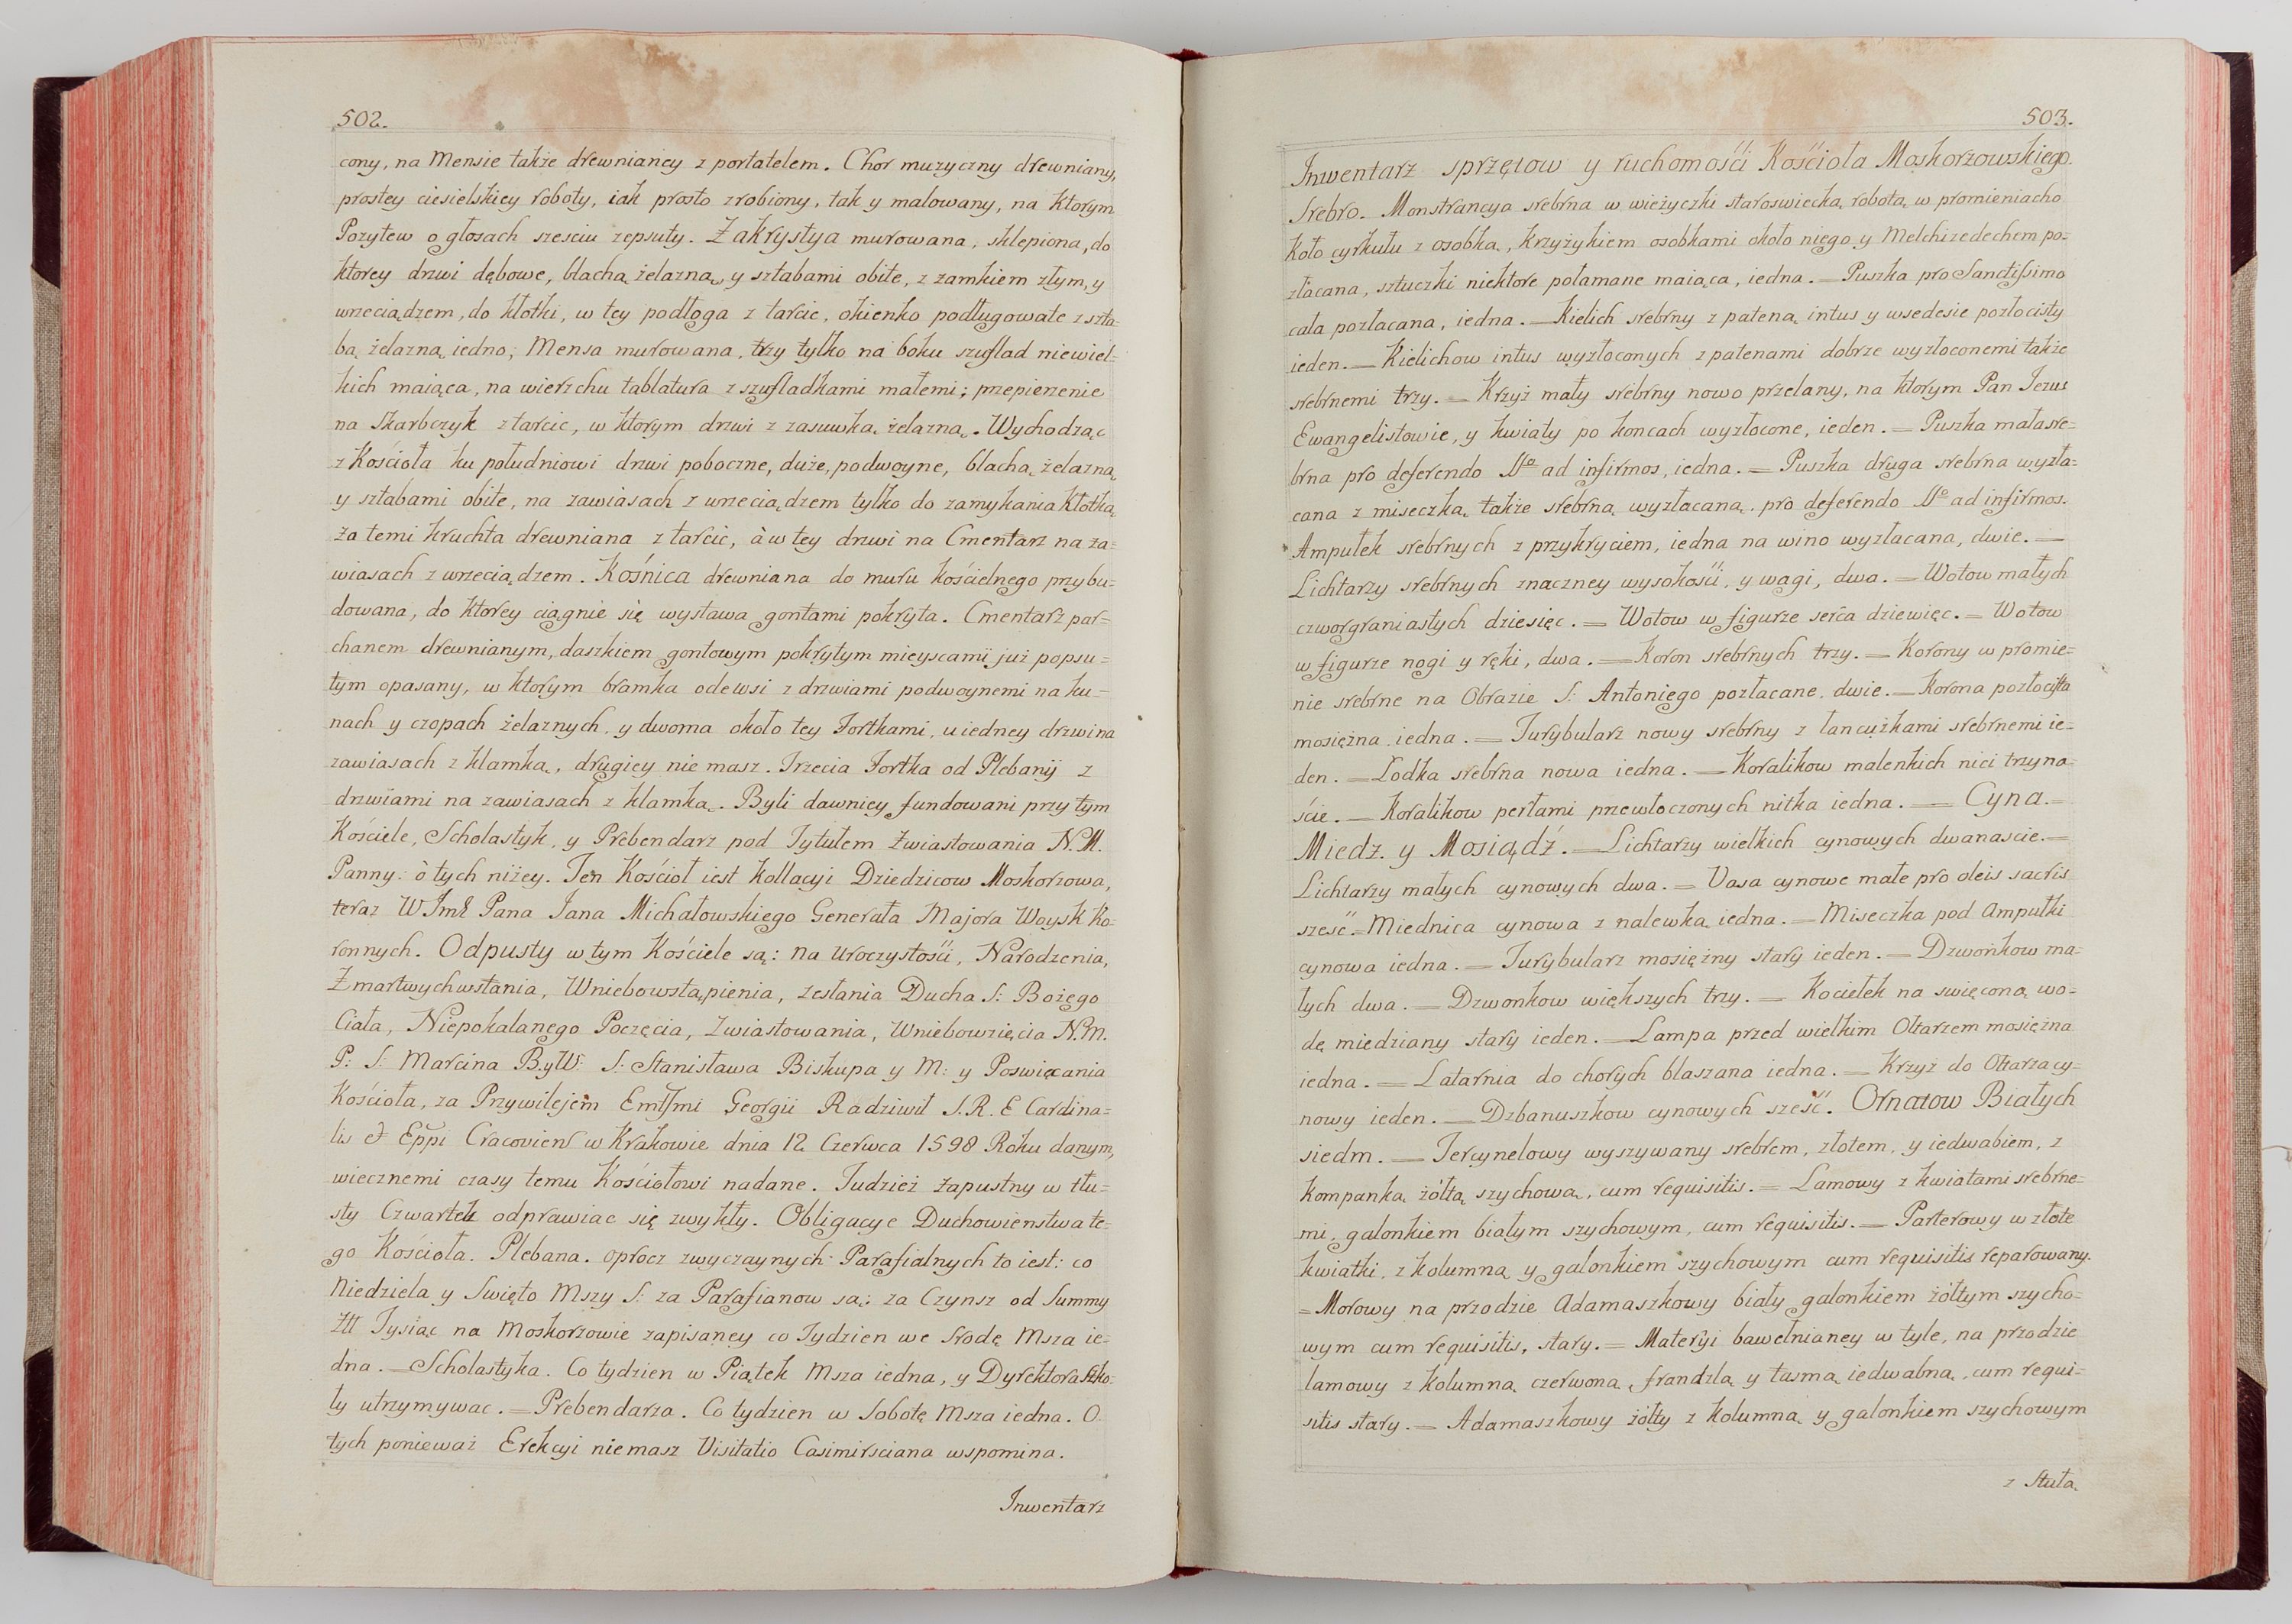 502.
cony, na Mensie także drewnianey z portatelem. Chor muzyczny drewniany,
prostey ciesielskiey roboty, iak prosto zrobiony, tak y malowany, na ktorym
Pozytew o głosach szesciu zepsuty. Zakrystya murowana, sklepiona, do
ktorey drzwi dębowe, blachą żelazną, y sztabami obite, z zamkiem złym, y
wrzeciądzem, do kłotki, w tey podłoga z tarcic, okienko podługowate z szta=
bą żelazną iedno; Mensa murowana, trzy tylko na boku szuflad niewiel=
kich maiąca, na wierzchu tablatura z szufladkami małemi; przepierzenie
na Skarbczyk z tarcic, w ktorym drzwi z zasuwką żelazną. Wychodząc
z Kościoła ku południowi drzwi poboczne, duże, podwoyne, blachą żelazną,
y sztabami obite, na zawiasach z wrzeciądzem tylko do zamykania kłotką,
za temi kruchta drewniana z tarcic, à w tey drzwi na Cmentarz na za=
wiasach z wrzeciądzem. Kośnica drewniana do muru kościelnego przybu=
dowana, do ktorey ciągnie się wystawa gontami pokryta. Cmentarz par=
chanem drewnianym, daszkiem gontowym pokrytym mieyscami już popsu=
tym opasany, w ktorym bramka odewsi z drzwiami podwoynemi na ku=
nach y czopach żelaznych, y dwoma około tey Fortkami, u iedney drzwi na
zawiasach z klamką, drugiey nie masz. Trzecia Fortka od Plebanij z
drzwiami na zawiasach z klamką. Byli dawniey fundowani przy tym
Kościele, Scholastyk, y Prebendarz pod Tytułem Zwiastowania N. M.
Panny: ò tych niżey. Ten Kościoł iest Kollacyi Dziedzicow Moskorzowa,
teraz W Jmć Pana Jana Michałowskiego Generała Majora Woysk Ko=
ronnych. Odpusty w tym Kościele są: na Uroczystości, Narodzenia,
Zmartwychwstania, Wniebowstąpienia, zesłania Ducha S: Bożego
Ciała, Niepokalanego Poczęcia, Zwiastowania, Wniebowzięcia N. M.
P: S: Marcina B. y W: S: Stanisława Biskupa y M: y Poswiącania
Kościoła, za Przywilejem Emissmi Georgii Radziwił S. R. E Cardina=
lis et Eppi Cracoviens w Krakowie dnia 12 Czerwca 1598 Roku danym,
wiecznemi czasy temu Kościołowi nadane. Tudzież Zapustny w tłu=
sty Czwartek odprawiac się zwykły. Obligacye Duchowienstwa te=
go Kościoła. Plebana. oprocz zwyczaynych Parafialnych to iest: co
Niedziela y Swięto Mszy S: za Parafianow są: za Czynsz od Summy
Złł Tysiąc na Moskorzowie zapisaney co Tydzien we Srodę Msza ie=
dna. — Scholastyka. Co tydzien w Piątek Msza iedna, y Dyrektora Szko=
ły utrzymywac. = Prebendarza. Co tydzien w Sobotę Msza iedna. O
tych ponieważ Erekcyi niemasz Visitatio Casimirsciana wspomina.
Inwentarz
503.
Inwentarz sprzętow y ruchomości Kościoła Moskorzowskiego.
Srebro. Monstrancya srebrna w wieżyczki staroswiecką robotą, w promieniach o
koło cyrkułu z osobką, krzyżykiem osobkami około niego y Melchizedechem po=
złacana, sztuczki niektore połamane maiąca, iedna. — Puszka pro Sanctissimo
cała pozłacana, iedna. — Kielich srebrny z pateną intus y wsedesie pozłocisty
ieden. — Kielichow intus wyzłoconych z patenami dobrze wyzłoconemi także
srebrnemi trzy. = Krzyż mały srebrny nowo przelany, na ktorym Pan Jezus
Ewangelistowie, y kwiaty po koncach wyzłocone, ieden. = Puszka mała sre=
brna pro deferendo Sso ad infirmos, iedna. = Puszka druga srebrna wyzła=
cana z miseczką także srebrną wyzłacaną, pro deferendo Sso ad infirmos.
Ampułek srebrnych z przykryciem, iedna na wino wyzłacana, dwie. —
Lichtarzy srebrnych znaczney wysokości, y wagi, dwa. = Wotow małych
czworgraniastych dziesięc. = Wotow w figurze serca dziewięc. = Wotow
w figurze nogi y ręki, dwa. — Koron srebrnych trzy. — Korony w promie=
nie srebrne na Obrazie S: Antoniego pozłacane, dwie. — Korona pozłocista
mosiężna iedna. — Turybularz nowy srebrny z łancużkami srebrnemi ie=
den. — Łodka srebrna nowa iedna. — Koralikow malenkich nici trzyna
ście. — Koralikow perłami przewłoczonych nitka iedna. — Cyna. =
Miedz. y Mosiądź. — Lichtarzy wielkich cynowych dwanascie. =
Lichtarzy małych cynowych dwa. = Vasa cynowe małe pro oleis sacris
sześć. = Miednica cynowa z nalewką iedna. — Miseczka pod Ampułki
cynowa iedna. — Turybularz mosiężny stary ieden. — Dzwonkow ma=
łych dwa. — Dzwonkow większych trzy. — Kociełek na swięconą wo=
dę miedziany stary ieden. — Lampa przed wielkim Ołtarzem mosiężna
iedna. — Latarnia do chorych blaszana iedna. — Krzyż do Ołtarza cy=
nowy ieden. — Dzbanuszkow cynowych sześć. Ornatow Białych
siedm. — Tercynelowy wyszywany srebrem, złotem, y iedwabiem, z
kompanką żółtą szychową, cum requisitis. = Lamowy z kwiatami srebrne=
mi, galonkiem białym szychowym, cum requisitis. — Parterowy w złote
kwiatki, z kolumną y galonkiem szychowym cum requisitis reparowany.
= Morowy na przodzie Adamaszkowy biały galonkiem żółtym szycho=
wym cum requisitis, stary. = Materyi bawełnianey w tyle, na przodzie
lamowy z kolumną czerwoną, frandzlą y tasmą iedwabną, cum requi=
sitis stary. = Adamaszkowy żółty z kolumną y galonkiem szychowym
z Stułą